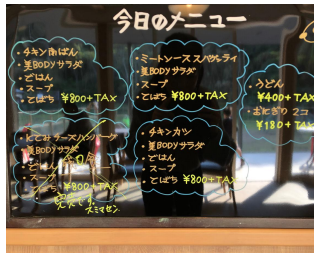 今日のメニュー
・チキン南ばん
・美BODYサラダ
・ごはん
・スープ
・こばち ¥800+TAX
・ミートソース スパゲッティ
・美BODYサラダ
・スープ
・こばち ¥800+TAX
・うどん
¥400+TAX
・おにぎり 2コ
¥180+TAX
・にこみチーズハンバーグ
・美BODYサラダ
・ごはん
・スープ
・こばち ¥800+TAX
完売です
スミマセン
・チキンカツ
・美BODYサラダ
・ごはん
・スープ
・こばち ¥800+TAX